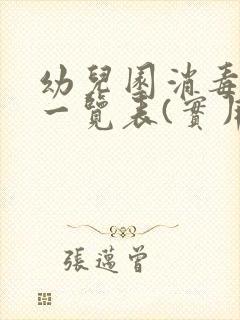 幼兒園消毒
一覽表(實)
張邁曾